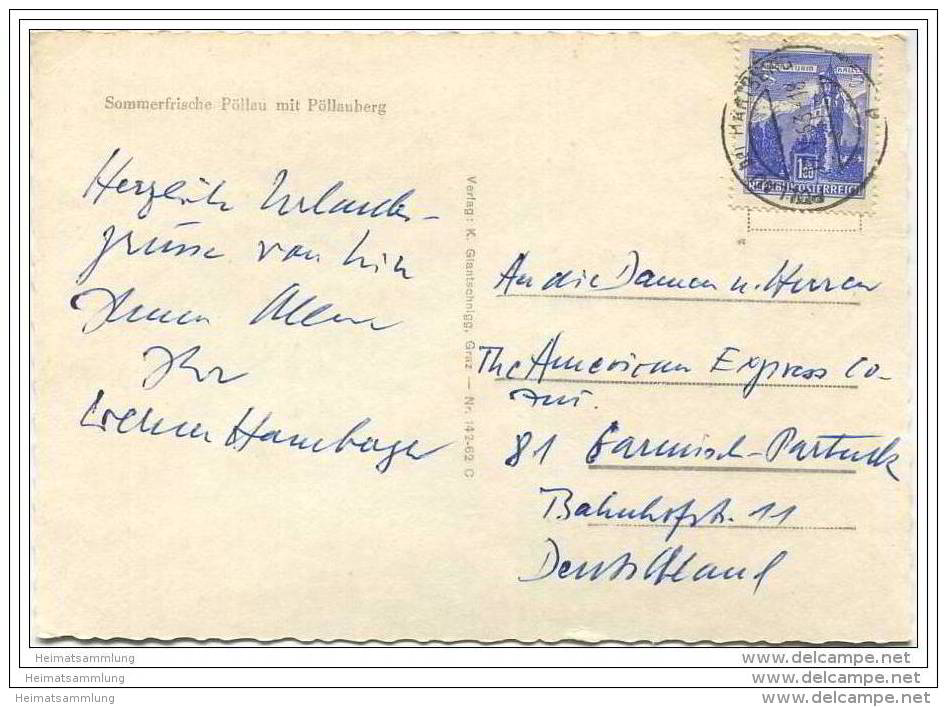 Sommerfrische Pöllau mit Pöllauberg
Herzliche Urlaubs-
grüsse von hier
Ihnen Allen
Ihr
Werner Hamburger
Verlag: K. Glantschnigg, Graz — Nr. 142-62 C
BEI HARTBERG
1.80
REPUBLIK ÖSTERREICH
An die Damen u. Herren
The American Express Co-
81 Garmisch-Partenk
Bahnhofstr. 11
Deutschland
Heimatsammlung
Heimatsammlung
Heimatsammlung
www.delcampe.net
www.delcampe.net
www.delcampe.net